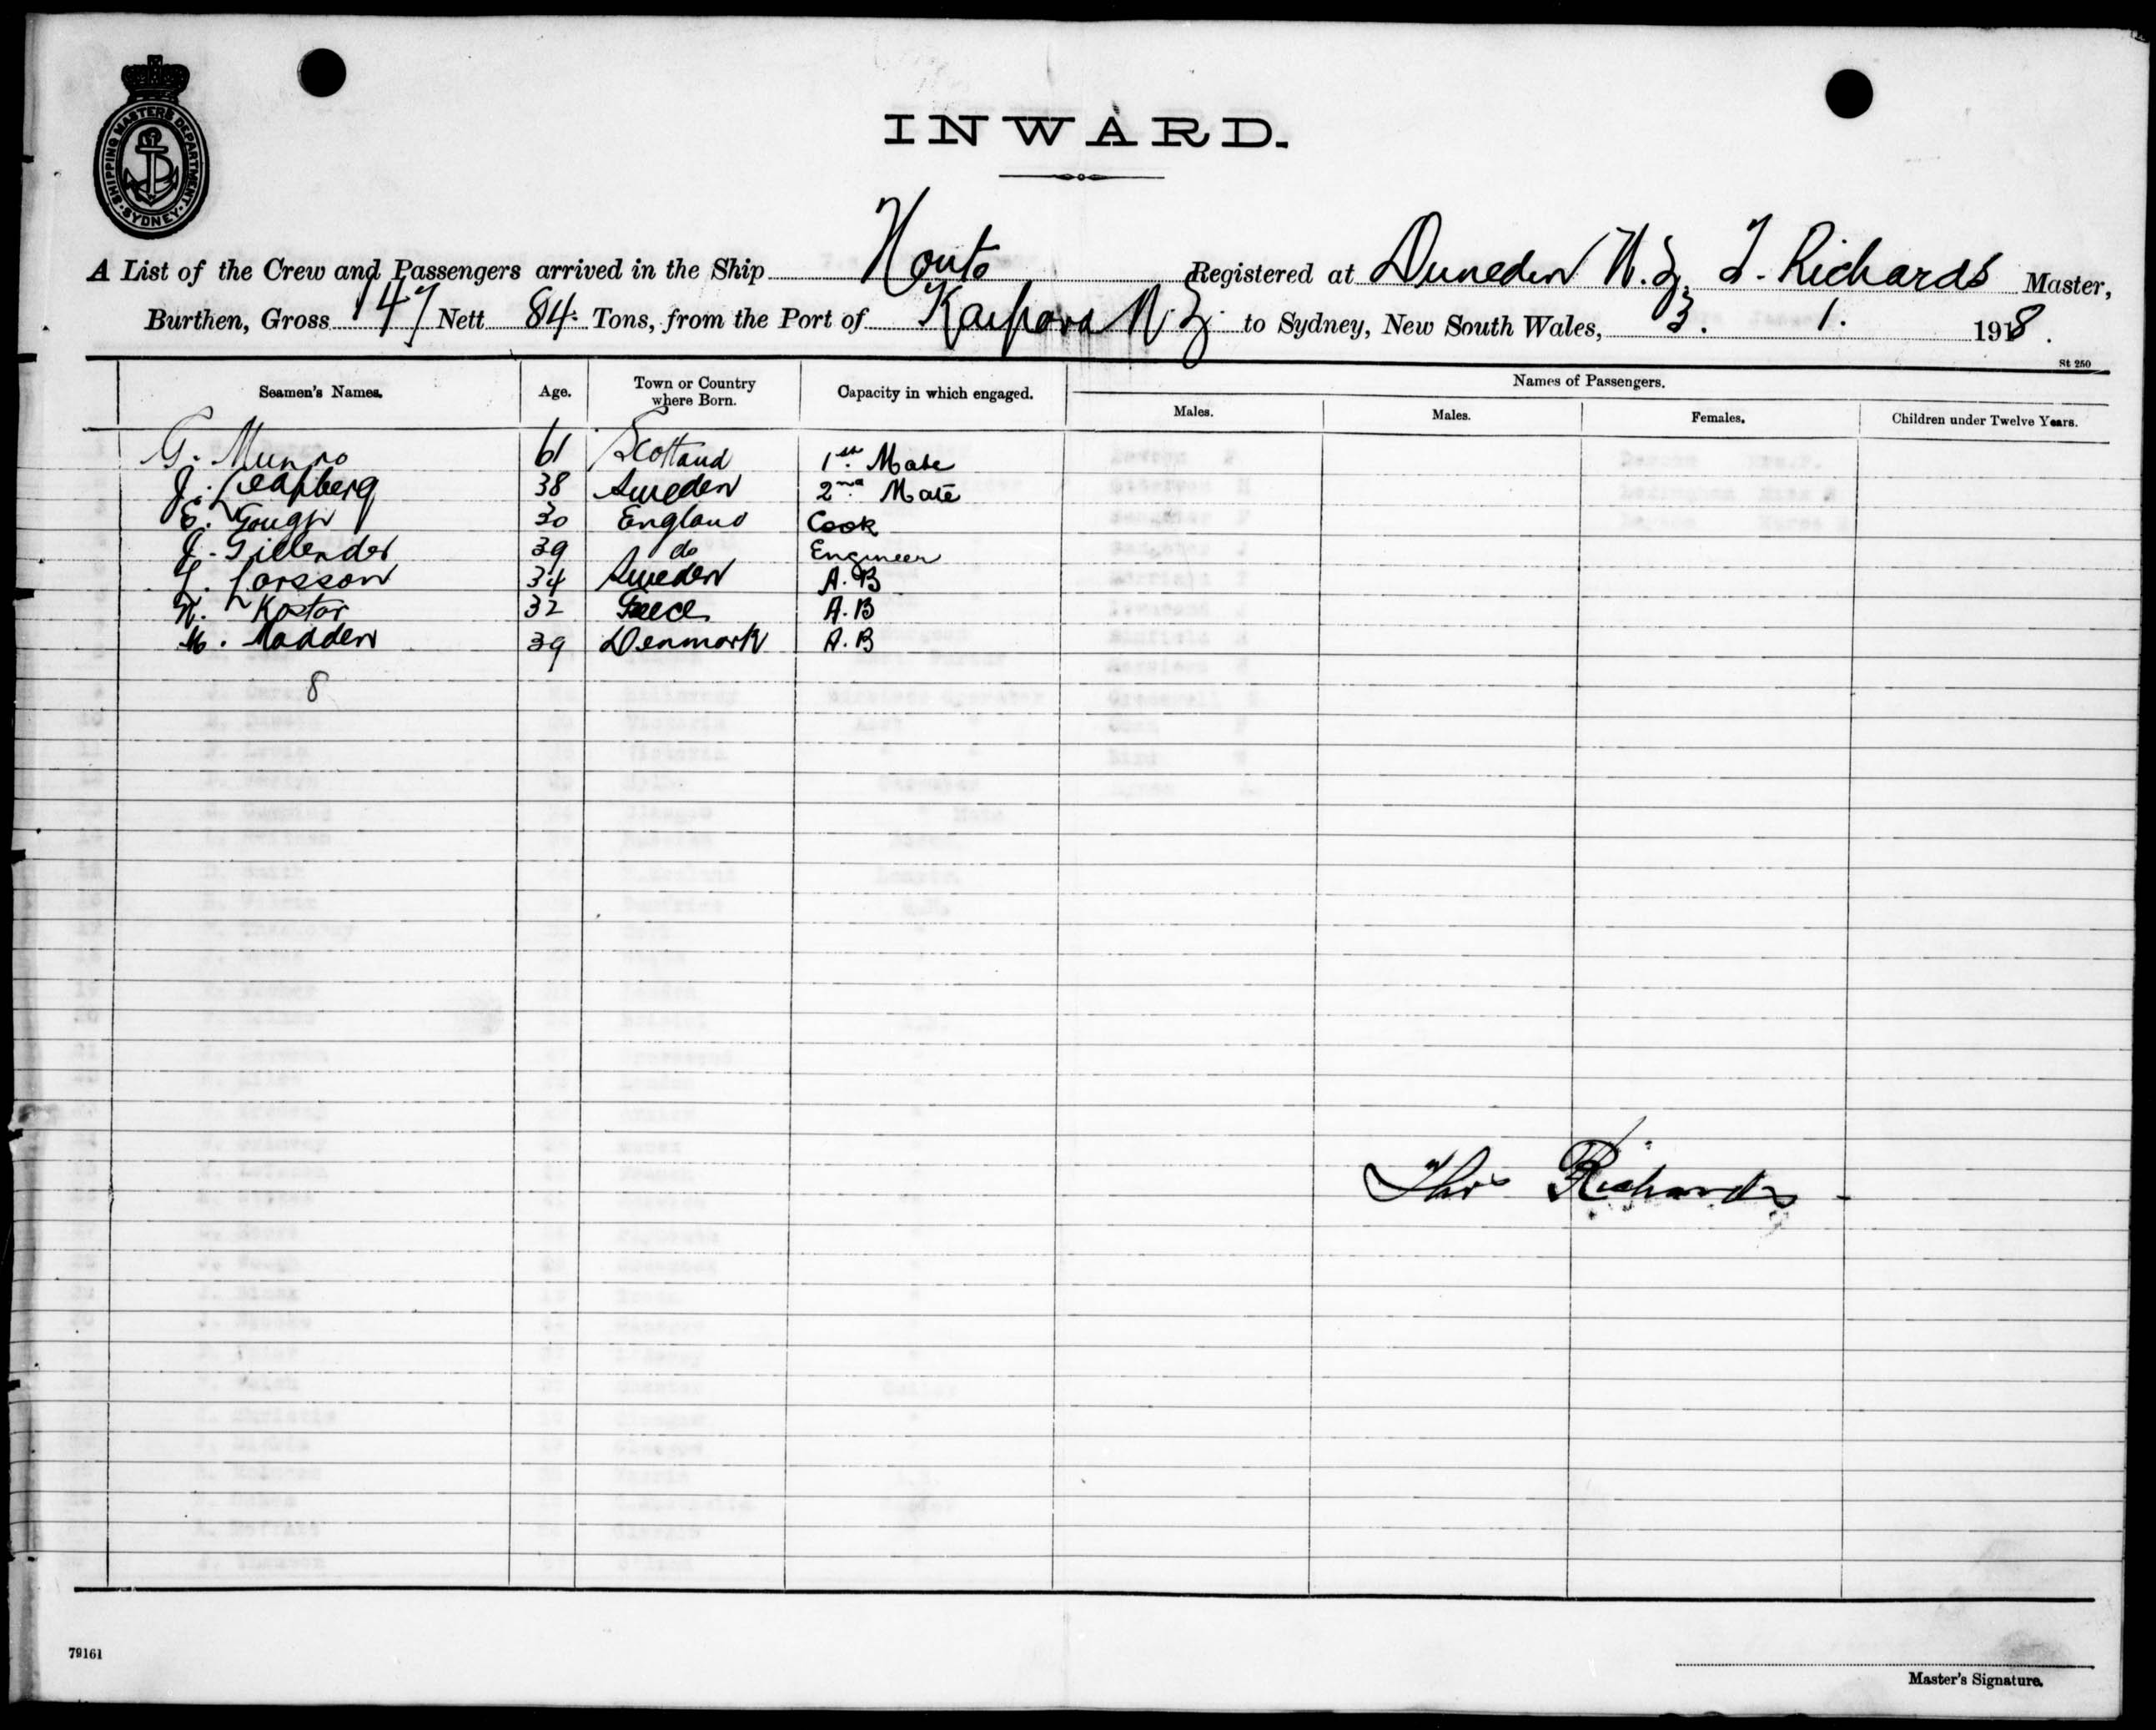 SHIPPING MASTERS DEPARTMENT
SYDNEY
INWARD.
A List of the Crew and Passengers arrived in the Ship Houto Registered at Dunedin N.Z. T. Richards Master,
Burthen, Gross 147 Nett 84 Tons, from the Port of Kaipara N.Z. to Sydney, New South Wales, 3. 1. 1918.
St 250
Seamen's Names. Age. Town or Country where Born. Capacity in which engaged. Names of Passengers.
Males. Males. Females. Children under Twelve Years.
G. Munro 61 Scotland 1st Mate
J. 38 Sweden 2nd Mate
E. Gough 30 England Cook
J. Gillender 39 do Engineer
L. Larsson 34 Sweden A.B
N. Kostar 32 Greece A.B
M. Madden 39 Denmark A.B
8
Thos Richards
79161
Master's Signature.